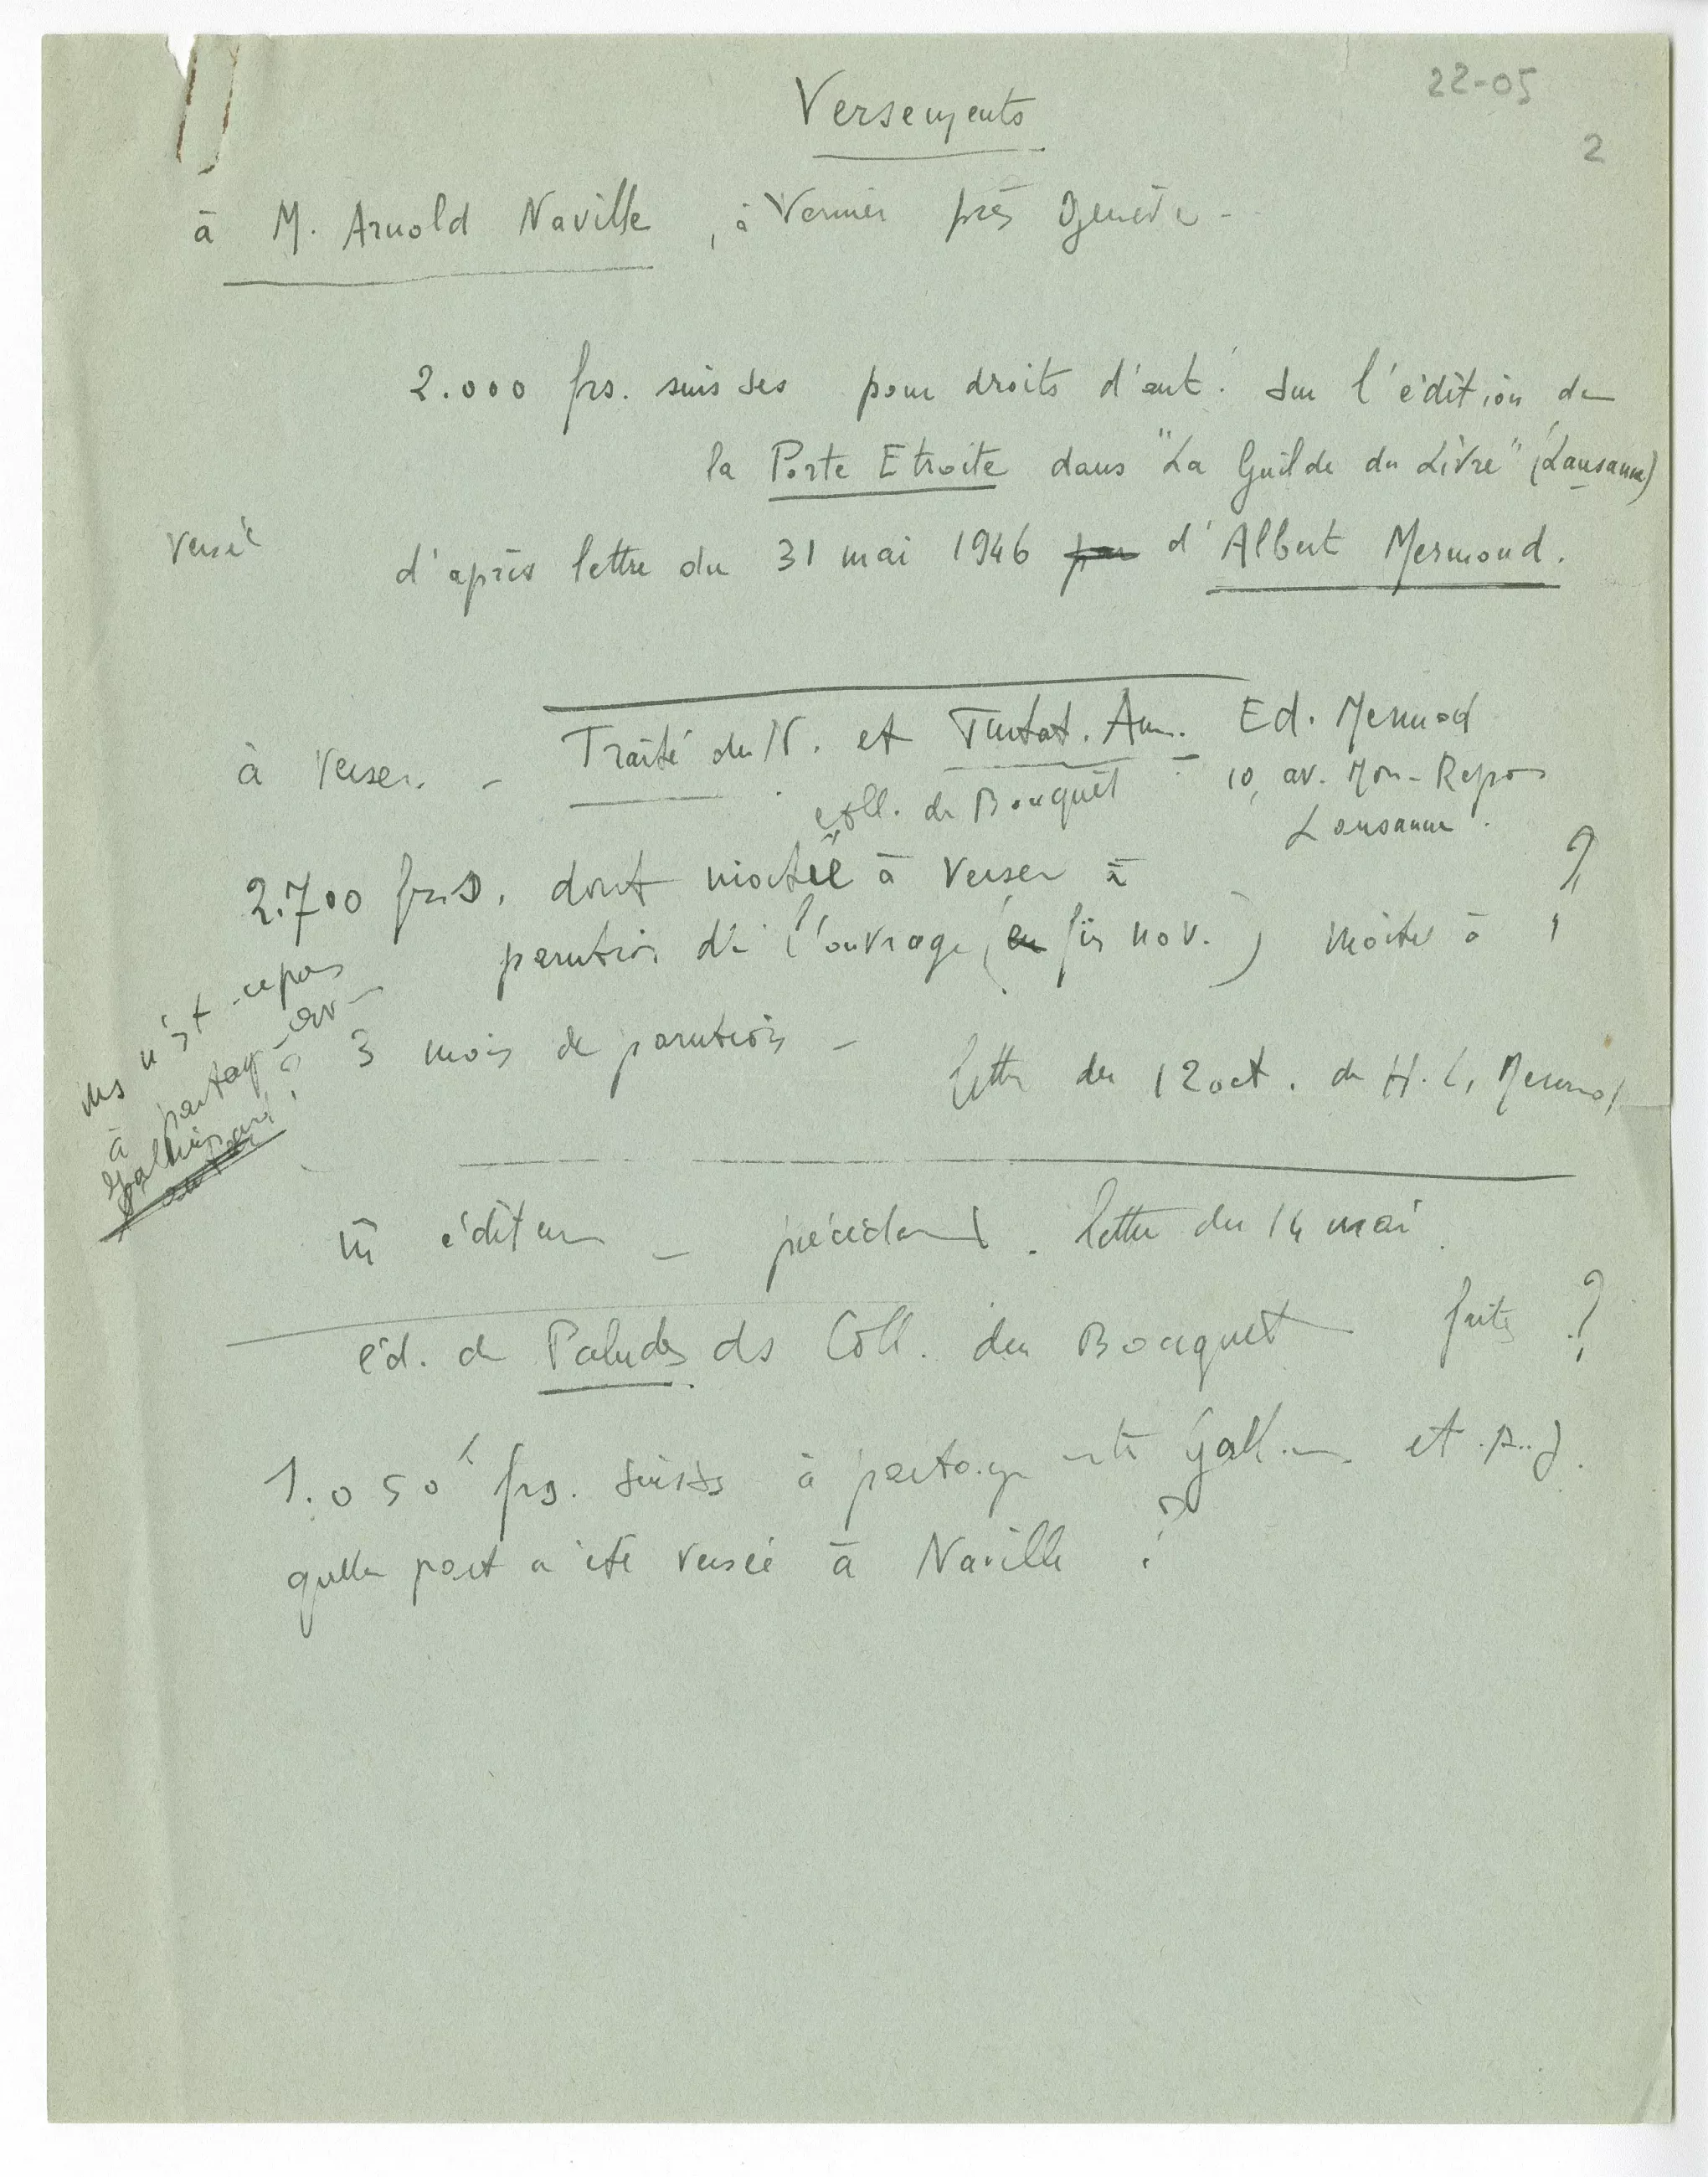 22-05
2
Versements
à M. Arnold Naville, à Vernier près Genève -
2.000 frs. suisses pour droits d'aut. sur l'édition de
la Porte Etroite dans "La Guilde du Livre" (Lausanne)
versé
d'après lettre du 31 mai 1946 par d'Albert Mermoud.
à verser. - Traité du N. et Tentat. Am. Ed. Mermod
coll. du Bouquet
10, av. Mon-Repos
Lausanne.
2.700 frs. dont moitié à verser à
parution de l'ouvrage (en fin nov.) moitié à ?
3 mois de parution -
lettre du 12 oct. de H. L. Mermod
ms n'est-ce pas
à partag- av-
Gallimard ?
m̄ éditeur - précédent. lettre du 14 mai.
éd. de Paludes ds Coll. du Bouquet faite ?
1.050 frs. suisses à partager entre Gallim. et
quelle part a été versée à Naville ?